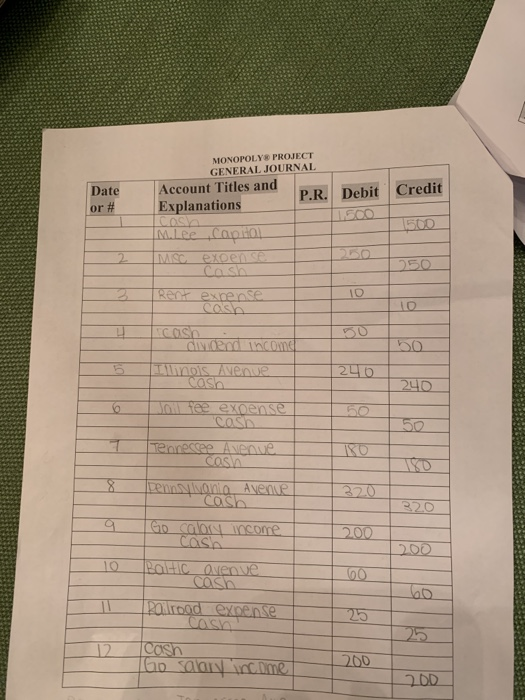 MONOPOLY® PROJECT
GENERAL JOURNAL
Date or # Account Titles and Explanations P.R. Debit Credit
1 Cash 1500
M.Lee, Capital 1500
2 Misc expense 250
Cash 250
3 Rent expense 10
Cash 10
4 cash 50
dividend income 50
5 Illinois Avenue 240
Cash 240
6 Jail fee expense 50
Cash 50
7 Tennessee Avenue 180
Cash 180
8 Pennsylvania Avenue 320
Cash 320
9 Go salary income 200
Cash 200
10 Baltic avenue 60
Cash 60
11 Railroad expense 25
Cash 25
12 Cash 200
Go salary income 200